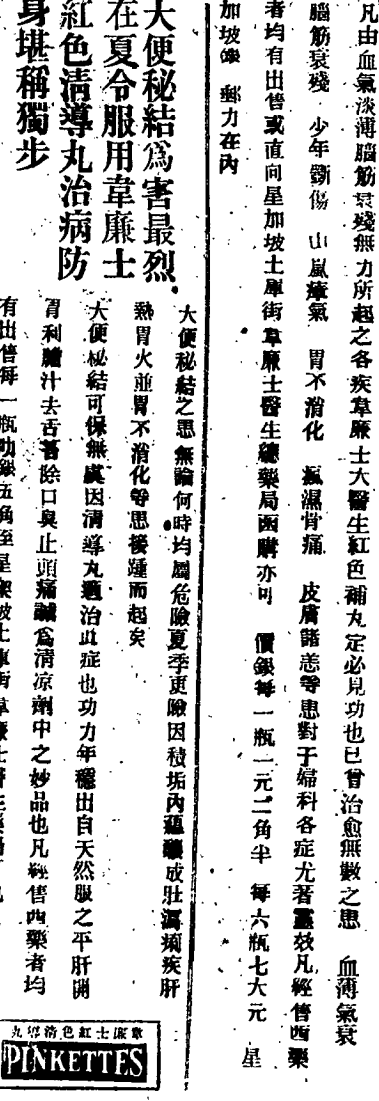 凡由血氣淡薄腦筋衰殘無力所起之各疾韋廉士大醫生紅色補丸定必見功也已曾治愈無數之患 血薄氣衰
腦筋衰殘 少年斲傷 山嵐瘴氣 胃不消化 瘋濕骨痛 皮膚諸恙等患對于婦科各症尤著靈效凡經售西藥
者均有出售或直向星加坡土庫街韋廉士醫生總藥局函購亦可 價銀每一瓶一元二角半 每六瓶七大元 星
加坡銀 郵力在內
大便秘結爲害最烈
在夏令服用韋廉士
紅色清導丸治病防
身堪稱獨步
大便秘結之患無論何時均屬危險夏季更險因積垢內蘊釀成肚瀉痢疾肝
熱胃火並胃不消化等患接踵而起矣
大便秘結可保無虞因清導丸適治此症也功力年穩出自天然服之平肝開
胃利膽汁去舌苔除口臭止頭痛誠爲清凉劑中之妙品也凡經售西藥者均
有出售每一瓶叻銀五角至星架坡土庫街韋廉士醫生藥局
韋廉士紅色清導丸
PINKETTES